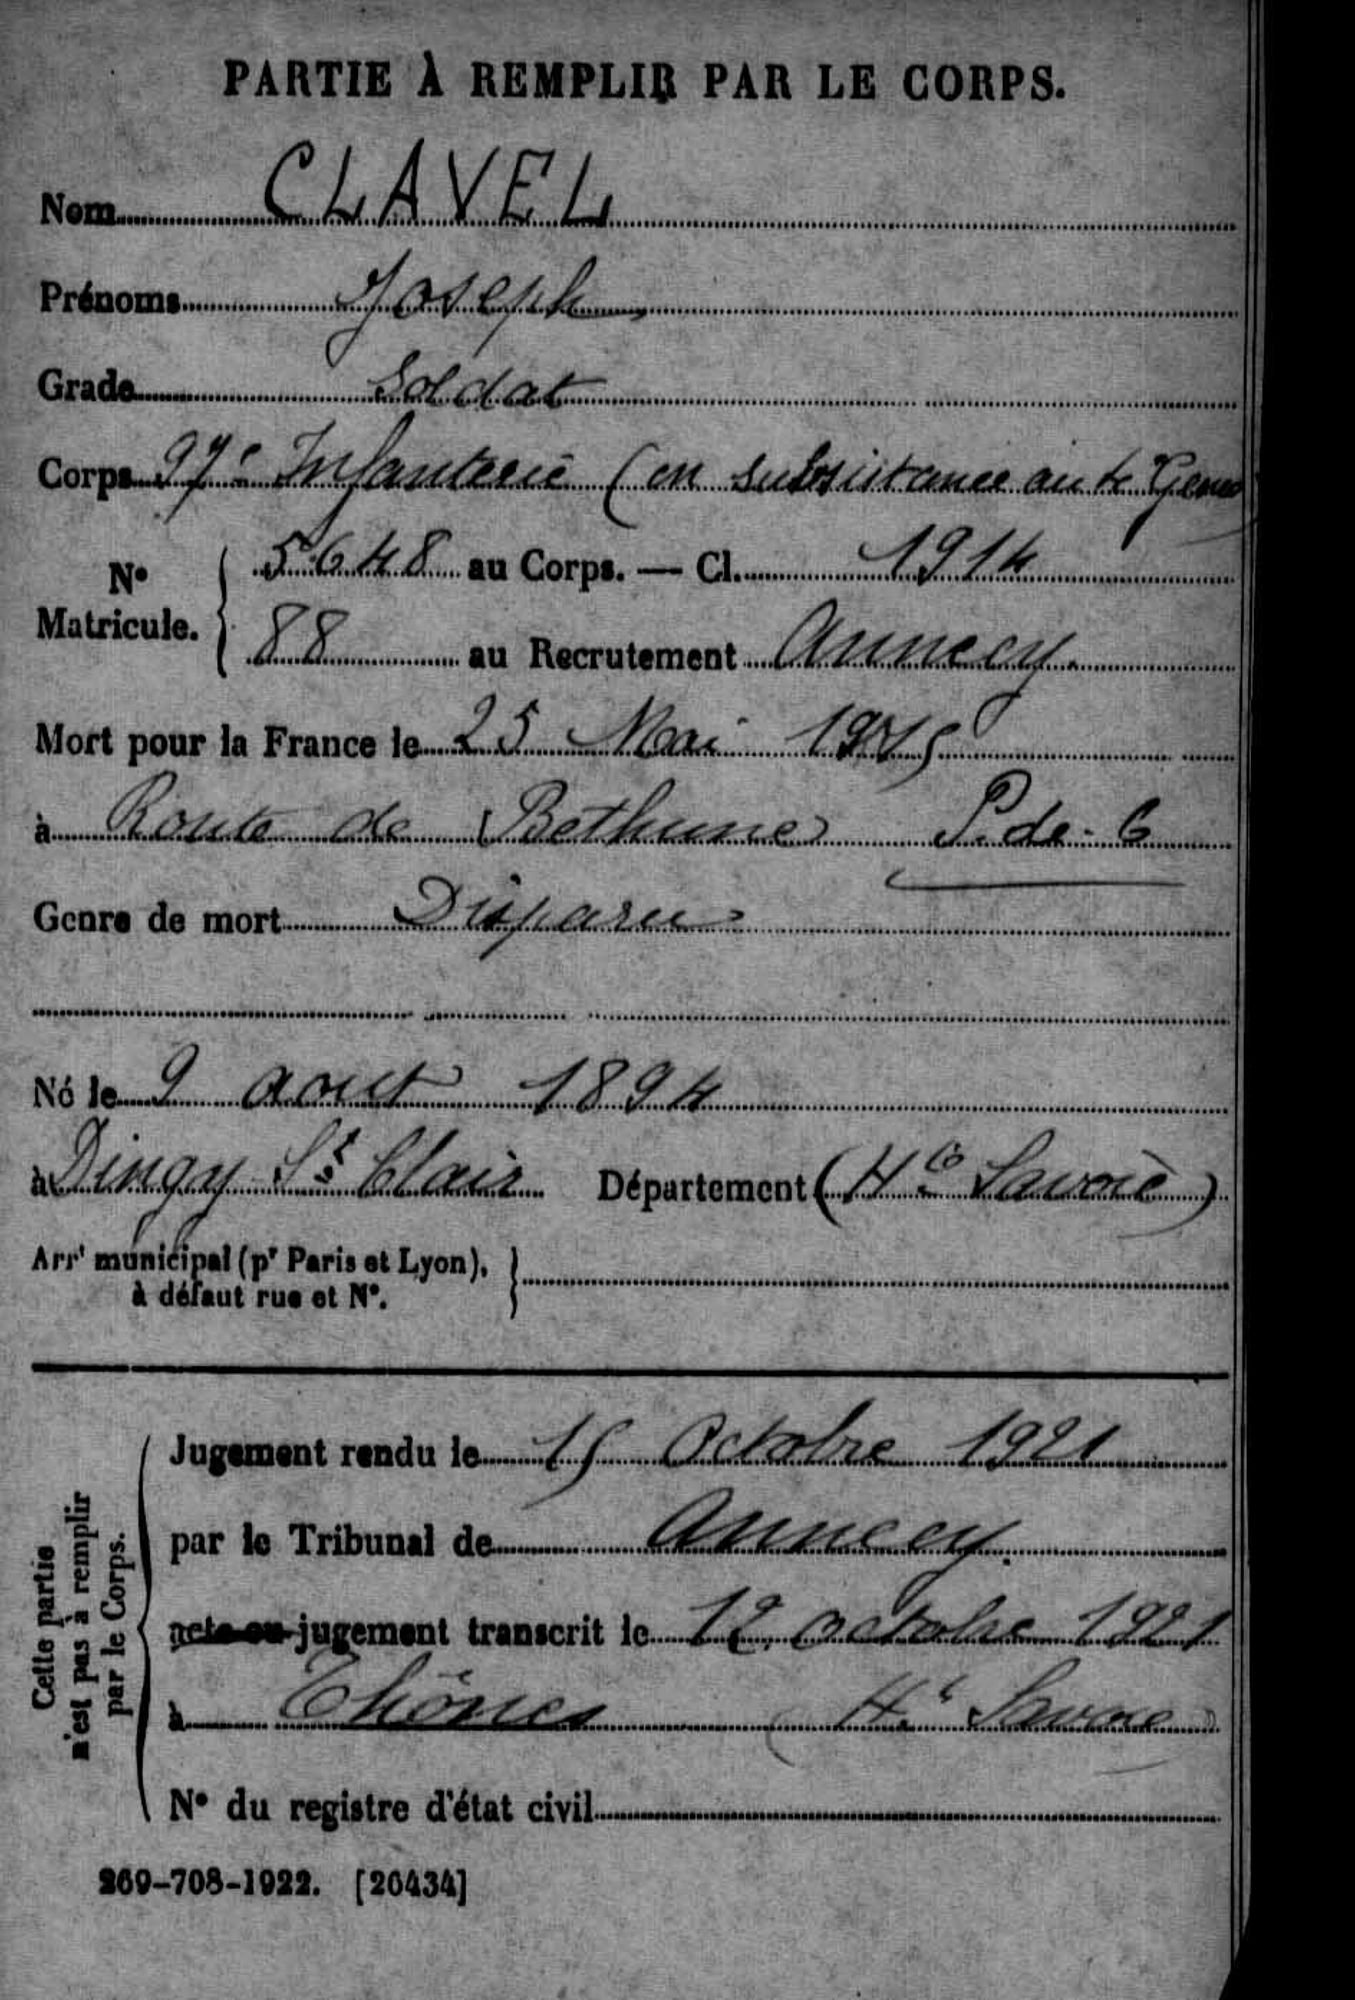 PARTIE À REMPLIR PAR LE CORPS.
Nom CLAVEL
Prénoms Joseph
Grade Soldat
Corps 97e Infanterie (en subsistance au 4e Génie
N° Matricule. 5648 au Corps. — Cl. 1914
88 au Recrutement Annecy
Mort pour la France le 25 Mai 1915
à Route de Bethune P. de. C
Genre de mort Disparu
Né le 9 aout 1894
à Dingy St Clair Département (Hte Savoie)
Arrt municipal (pr Paris et Lyon),
à défaut rue et N°.
Cette partie
n'est pas à remplir
par le Corps.
Jugement rendu le 15 Octobre 1921
par le Tribunal de Annecy.
acte ou jugement transcrit le octobre 1921
à Thônes (Hte Savoie)
N° du registre d'état civil
269-708-1922. [26434]